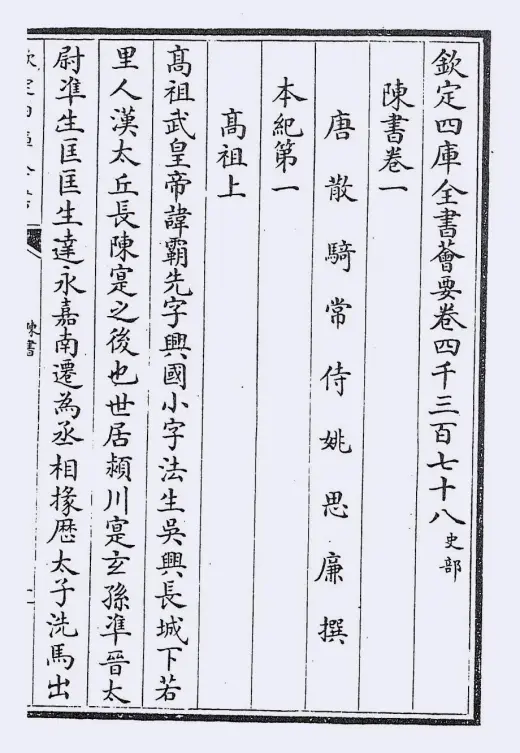 欽定四庫全書薈要卷四千三百七十八史部
陳書卷一
唐散騎常侍姚思廉撰
本紀第一
髙祖上
髙祖武皇帝諱霸先字興國小字法生吳興長城下若
里人漢太丘長陳寔之後也世居潁川寔玄孫準晉太
尉準生匡匡生達永嘉南遷為丞相掾歴太子洗馬出
陳書